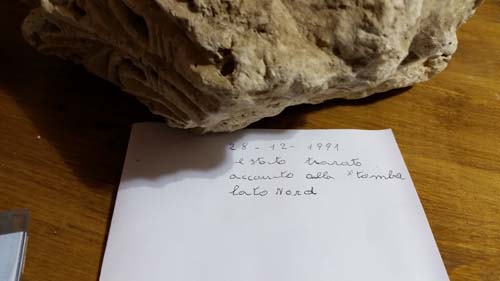 28-12-1991
è stato trovato
accanto alla tomba
lato Nord